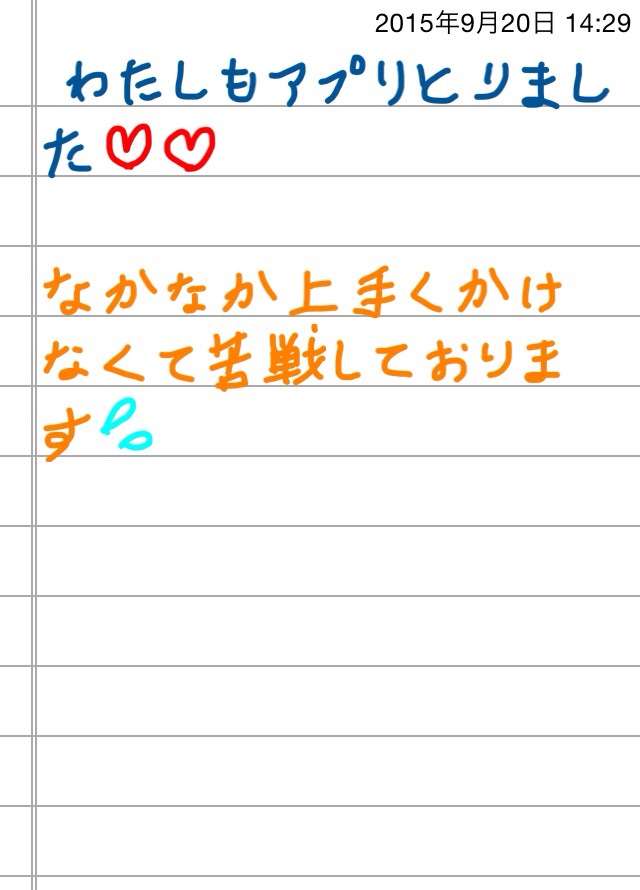 2015年9月20日 14:29
わたしもアプリとりまし
た♡♡
なかなか上手くかけ
なくて苦戦しておりま
す💦